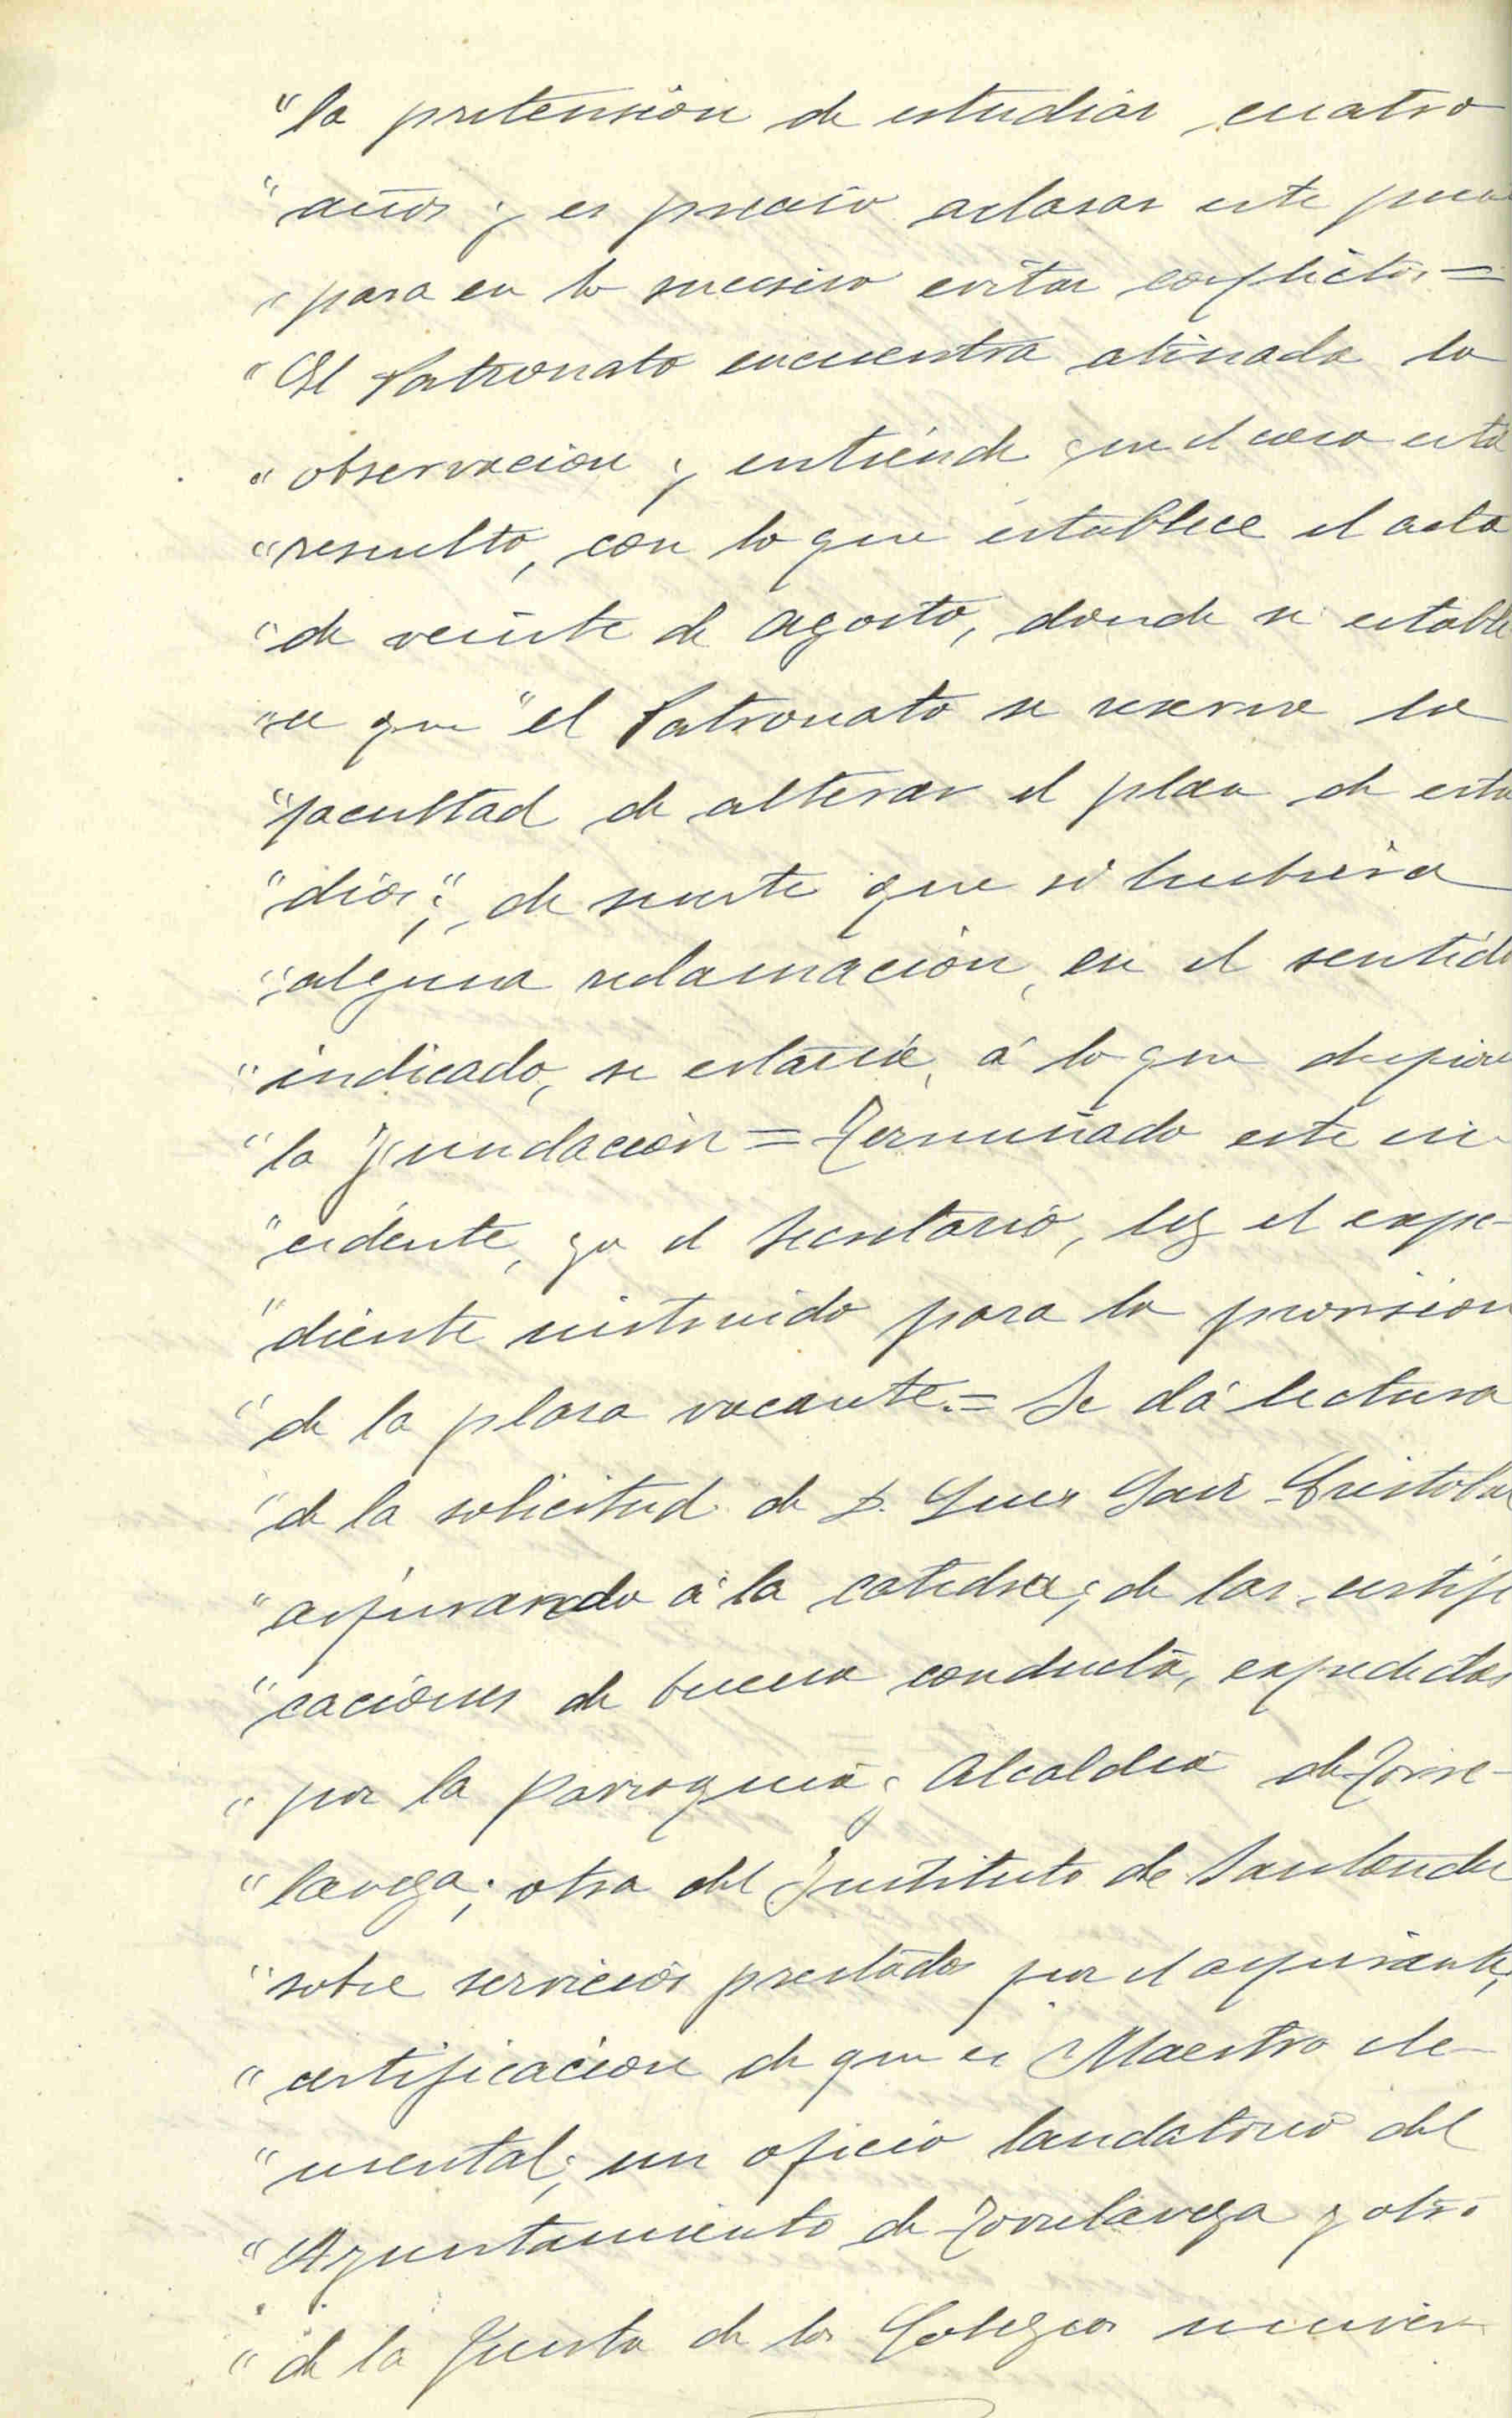 "la pretensión de estudiar cuatro
"años y es preciso aclarar este pun
"para en lo sucesivo evitar conflictos =
"El Patronato encuentra atinada la
"observacion y entiende que el caso está
"resuelto, con lo que establece el acta
"de veinte de Agosto, donde se estable
"ce que "el Patronato se reserva la
"facultad de alterar el plan de estu
"dios;" de suerte que si hubiera
"alguna reclamación, en el sentido
"indicado, se estaria, á lo que dispone
"la Fundación = Terminado este in-
"cidente, yo el Secretario, ley el expe-
"diente instruido para la provision
"de la plaza vacante. = Se dá lectura
"de la solicitud de D. Luis San Cristobal
"aspirando á la catedra; de las certifi
"caciones de buena conducta, expedidas
"por la Parroquia y Alcaldia de Torre-
"lavega; otra del Instituto de Santander
"sobre servicios prestados por el aspirante,
"certificacion de que es Maestro ele-
"mental; un oficio laudatorio del
"Ayuntamiento de Torrelavega y otro
"de la Junta de los Colegios